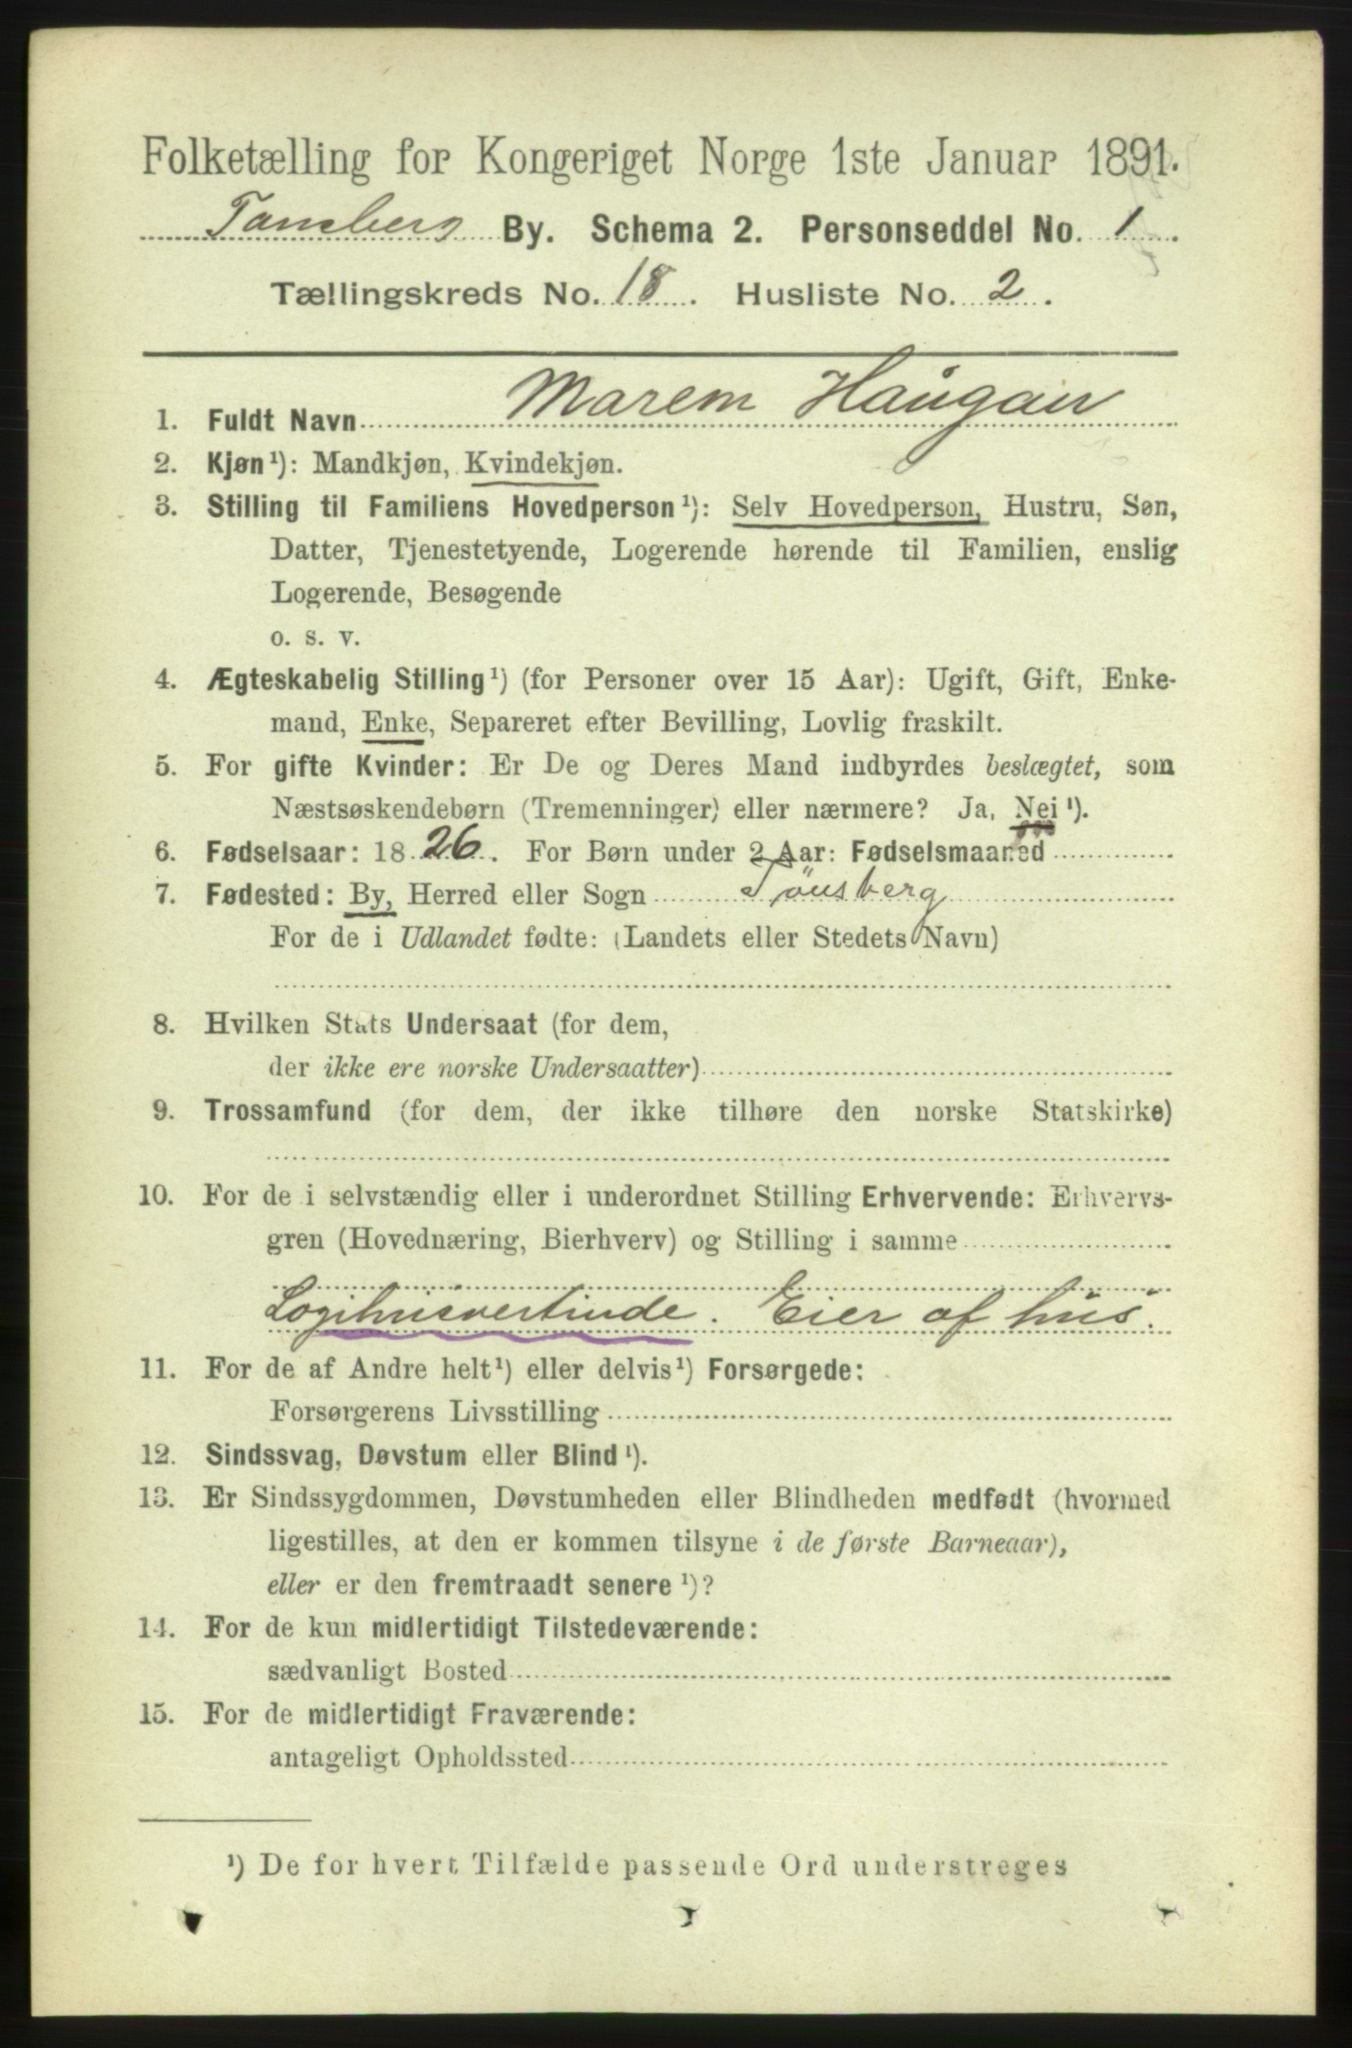 Folketælling for Kongeriget Norge 1ste Januar 1891.
Tønsberg By. Schema 2. Personseddel No. 1.
Tællingskreds No. 18. Husliste No. 2.
1. Fuldt Navn Maren Haugan
2. Kjøn¹): Mandkjøn, Kvindekjøn.
3. Stilling til Familiens Hovedperson¹): Selv Hovedperson, Hustru, Søn,
Datter, Tjenestetyende, Logerende hørende til Familien, enslig
Logerende, Besøgende
o. s. v.
4. Ægteskabelig Stilling¹) (for Personer over 15 Aar): Ugift, Gift, Enke-
mand, Enke, Separeret efter Bevilling, Lovlig fraskilt.
5. For gifte Kvinder: Er De og Deres Mand indbyrdes beslægtet, som
Næstsøskendebørn (Tremenninger) eller nærmere? Ja, Nei¹).
6. Fødselsaar: 1826. For Børn under 2 Aar: Fødselsmaaned
7. Fødested: By, Herred eller Sogn Tönsberg
For de i Udlandet fødte: (Landets eller Stedets Navn)
8. Hvilken Stats Undersaat (for dem,
der ikke ere norske Undersaatter)
9. Trossamfund (for dem, der ikke tilhøre den norske Statskirke)
10. For de i selvstændig eller i underordnet Stilling Erhvervende: Erhvervs-
gren (Hovednæring, Bierhverv) og Stilling i samme
Logihusvertinde. Eier af hus.
11. For de af Andre helt¹) eller delvis¹) Forsørgede:
Forsørgerens Livsstilling
12. Sindssvag, Døvstum eller Blind¹).
13. Er Sindssygdommen, Døvstumheden eller Blindheden medfødt (hvormed
ligestilles, at den er kommen tilsyne i de første Barneaar),
eller er den fremtraadt senere¹)?
14. For de kun midlertidigt Tilstedeværende:
sædvanligt Bosted
15. For de midlertidigt Fraværende:
antageligt Opholdssted
¹) De for hvert Tilfælde passende Ord understreges